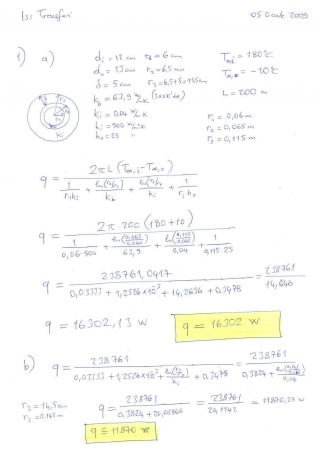 Isı Transferi
05 Ocak 2009
1) a)
di = 12 cm r1 = 6 cm
do = 13 cm r2 = 6,5 cm
δ = 5 cm r3 = 6,5+5 = 11,5 cm
kb = 63,9 W/mK
ki = 0,04 W/mK
hi = 500 W/m²K
ho = 25 "
T∞,i = 180°C
T∞,o = -10°C
L = 200 m
r1 = 0,06 m
r2 = 0,065 m
r3 = 0,115 m
r3
r2
r1
ki
q = 2πL (T∞,i - T∞,o) / (1/(r1hi) + ln(r2/r1)/kb + ln(r3/r2)/ki + 1/(r3 ho))
q = 2π.200 (180+10) / (1/(0,06.500) + ln(0,065/0,060)/63,9 + ln(0,115/0,065)/0,04 + 1/(0,115.25))
q = 238761,0417 / (0,03333 + 1,2526×10⁻³ + 14,2636 + 0,3478) = 238761 / 14,646
q = 16302,13 W
q = 16302 W
b) q = 238761 / (0,03333 + 1,2526×10⁻³ + ln(r3/r2)/ki + 0,3478) = 238761 / (0,3824 +
r3 = 14,5 cm
r3 = 0,145 m
q = 238761 / (0,3824 + 20,05866) = 238761 / 20,1142 = 11870,27 W
q ≅ 11870 W